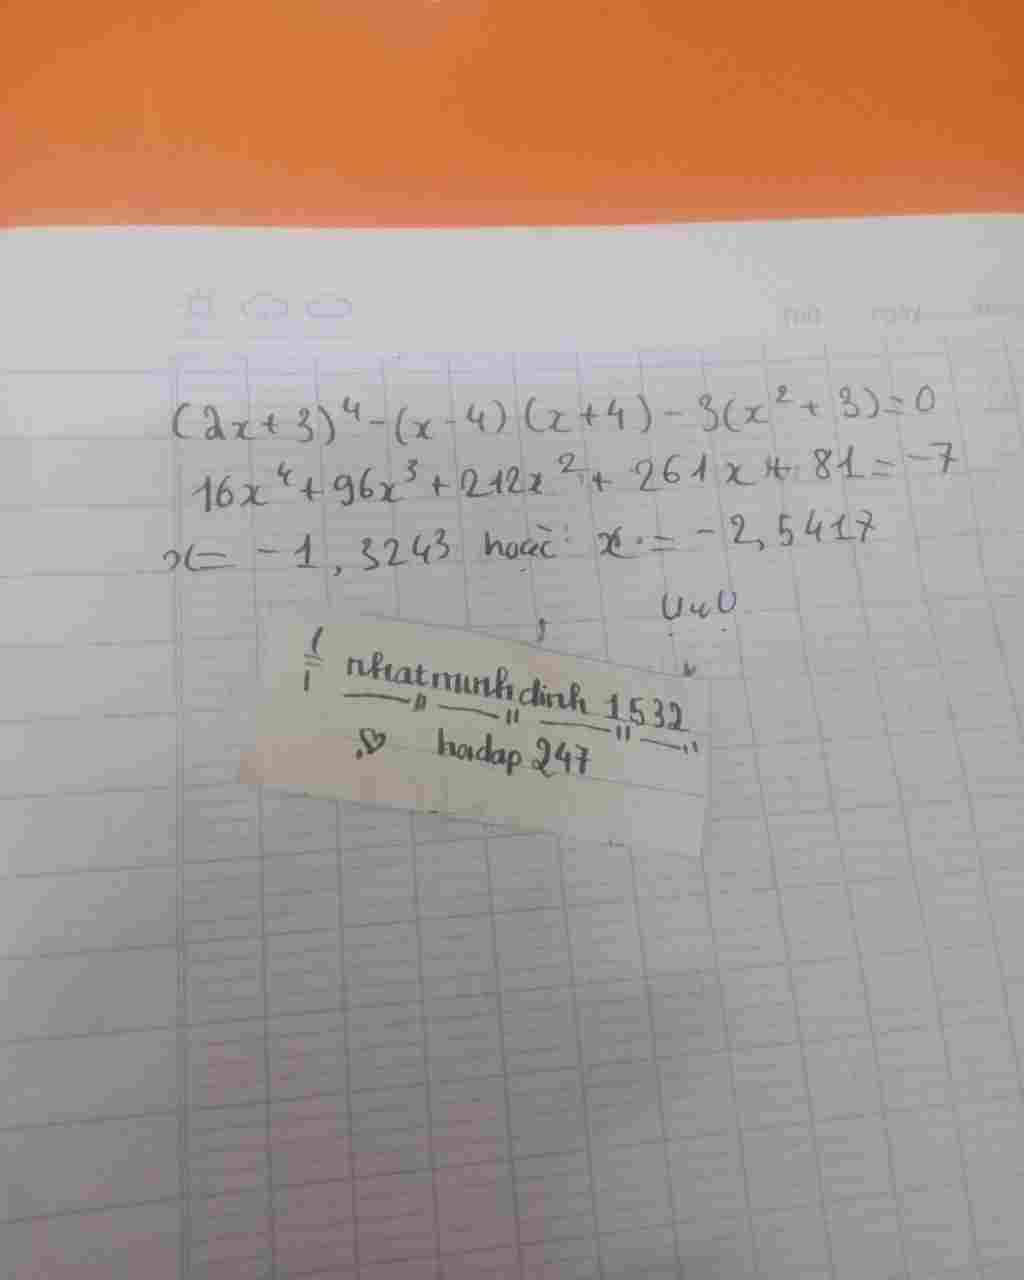 (2x+3)⁴-(x-4)(x+4)-3(x²+3)=0
16x⁴+96x³+212x²+261x+81=-7
x=-1,3243 hoặc x=-2,5417
UwU
nhatminhdinh 1532
hoidap 247